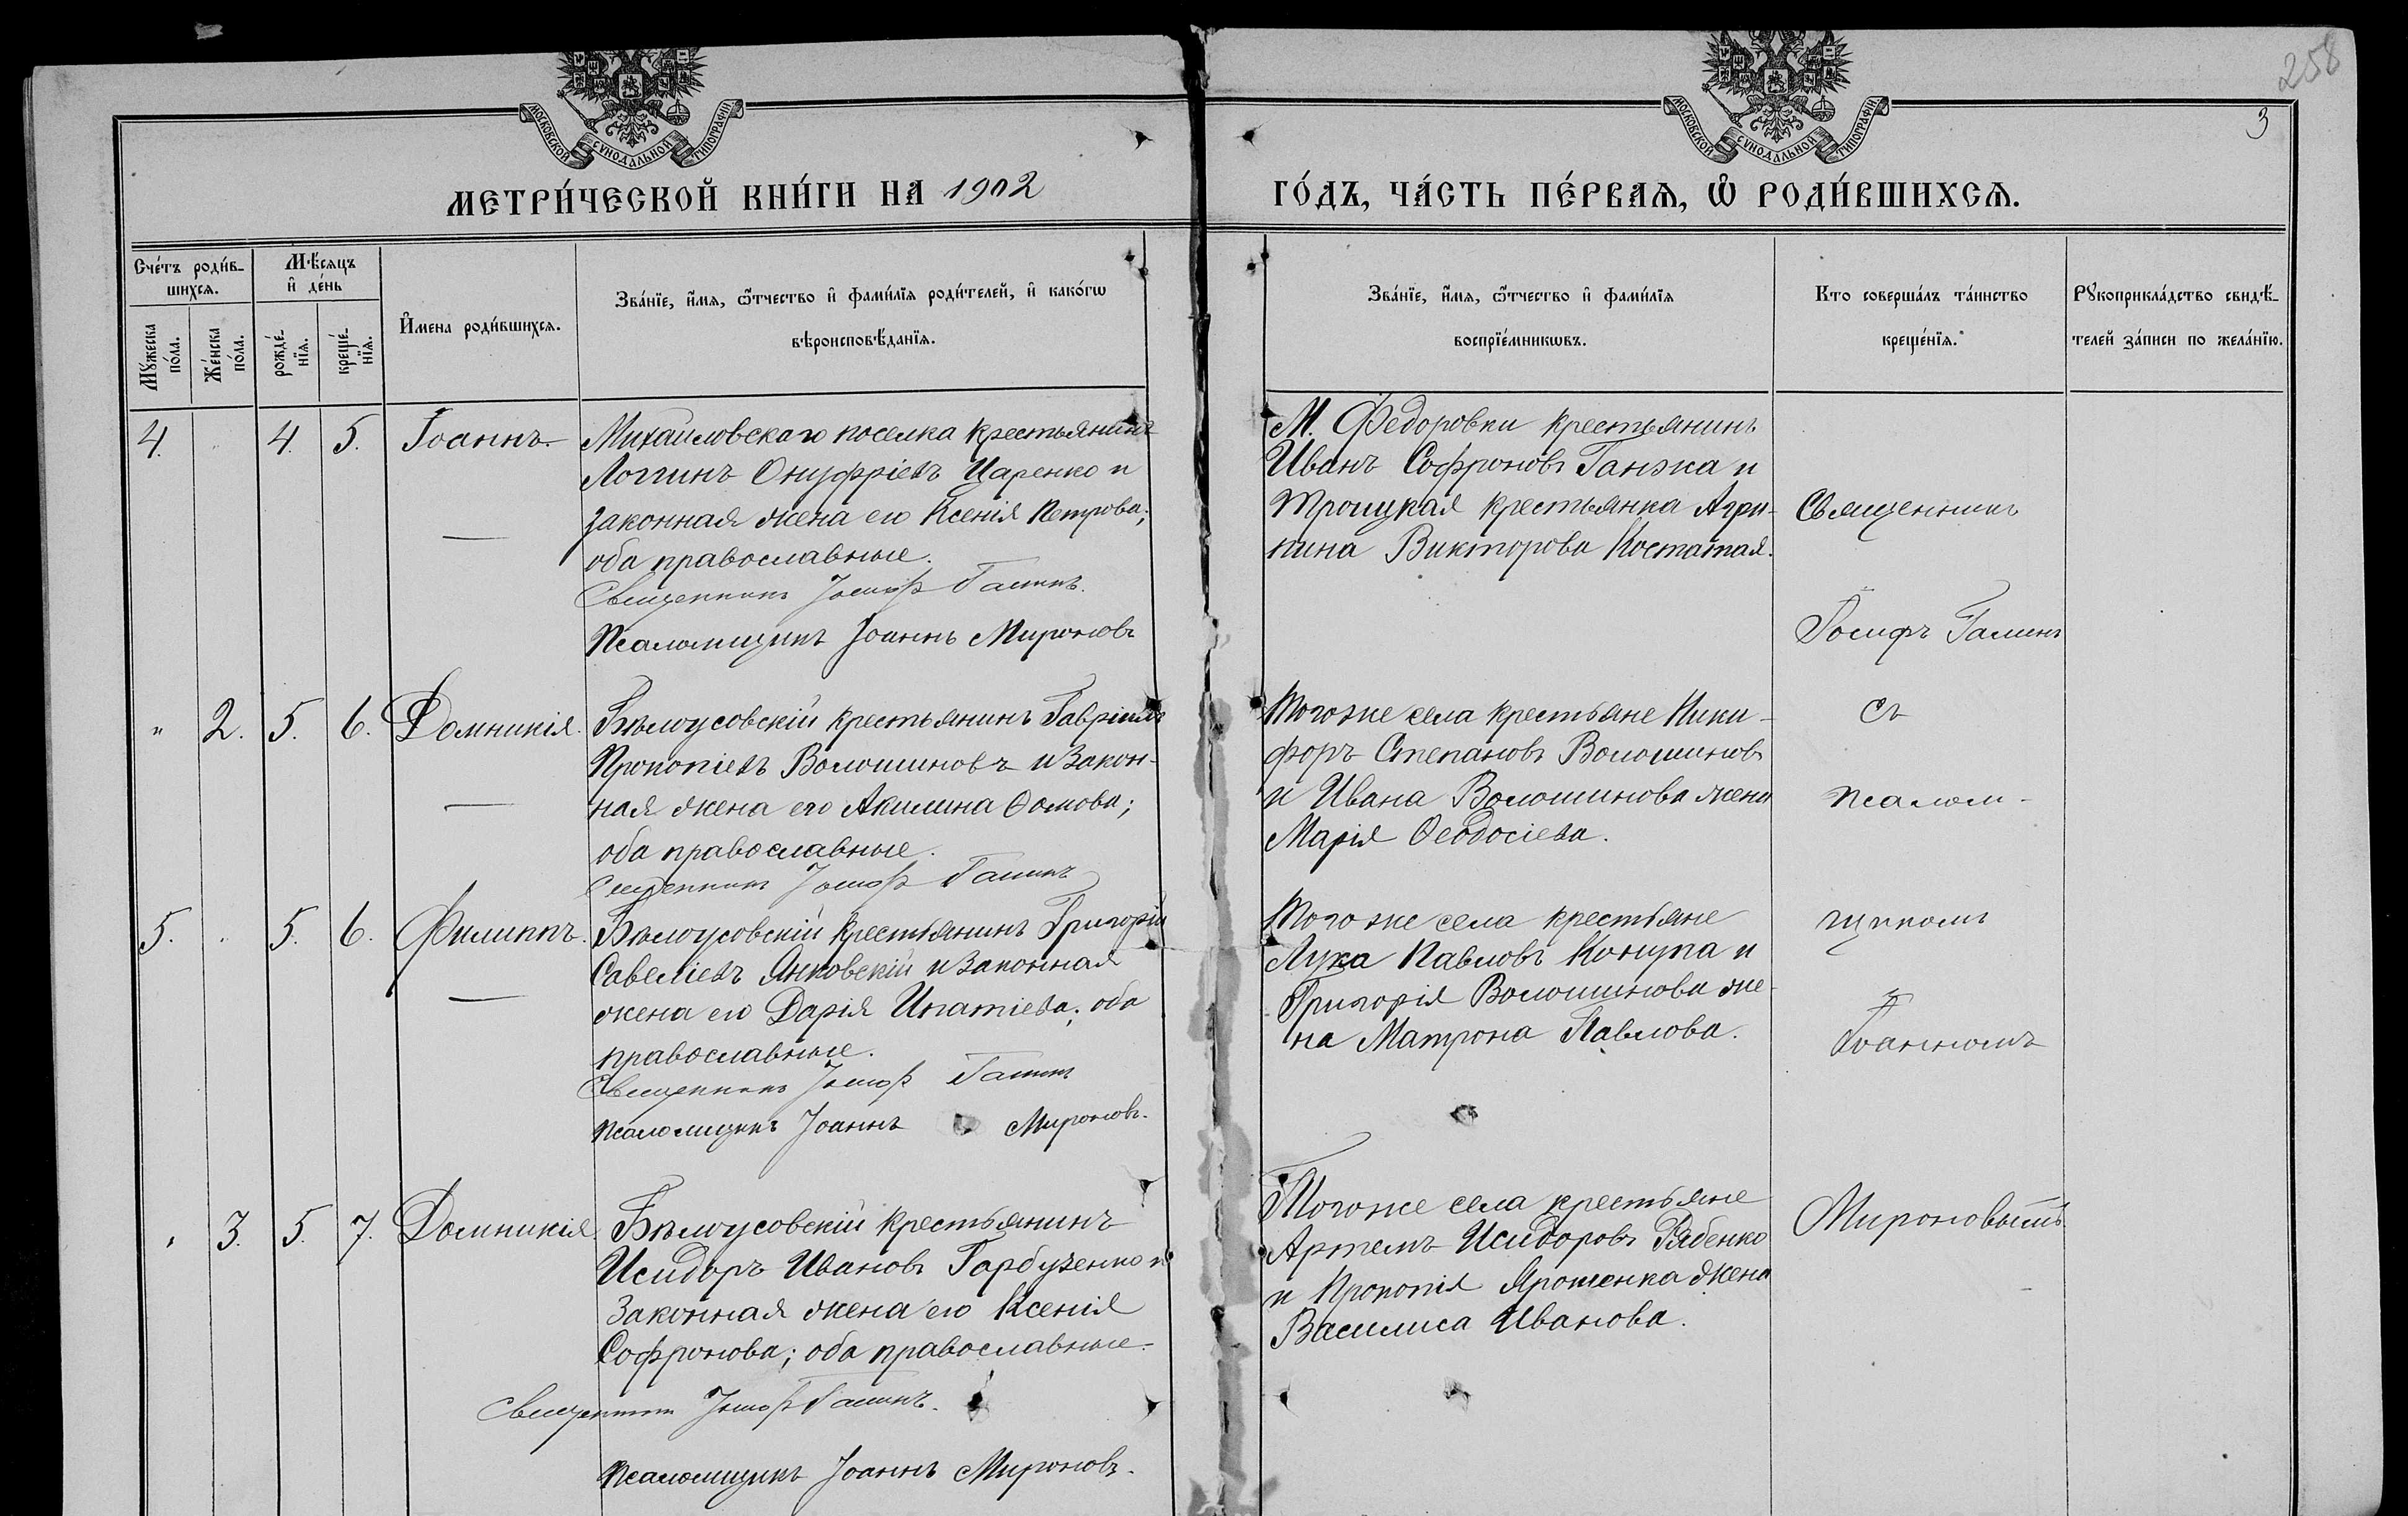 258
3
МОСКОВСКОЙ СѴНОДАЛЬНОЙ ТИПОГРАФІИ
МОСКОВСКОЙ СѴНОДАЛЬНОЙ ТИПОГРАФІИ
МЕТРИ́ЧЕСКОЙ КНИ́ГИ НА 1902
ГО́ДЪ, ЧА́СТЬ ПЕ́РВАѦ, Ѽ РОДИ́ВШИХСѦ.
Сче́тъ роди́в-
шихсѧ.
Мꙋ́жеска по́ла.
Же́нска по́ла.
Мѣ́сѧцъ
и҆ де́нь
рожде́-нїѧ.
креще́-нїѧ.
И҆мена роди́вшихсѧ.
Зва́нїе, и҆́мѧ, ѻ҆́тчество и҆ фами́лїѧ роди́телей, и҆ како́гѡ
вѣроисповѣ́данїѧ.
Зва́нїе, и҆́мѧ, ѻ҆́тчество и҆ фами́лїѧ
воспрїе́мникѡвъ.
Кто соверша́лъ та́инство
креще́нїѧ.
Рꙋкоприкла́дство свидѣ́-
телей за́писи по жела́нїю.
4. " 4. 5. Іоаннъ
Михайловскаго поселка крестьянинъ
Логгинъ Онуфріевъ Царенко и
законная жена его Ксенія Петрова;
оба православные.
Священникъ Іосифъ Галинъ.
Псаломщикъ Іоаннъ Мироновъ
М. Федоровки крестьянинъ
Иванъ Софроновъ Ганжа и
Троицкая крестьянка Агри-
пина Викторова Костатая.
Священникъ
Іосифъ Галинъ
" 2. 5. 6. Домникія.
Бѣлоусовскій крестьянинъ Гавріилъ
Прокопіевъ Волошиновъ и закон-
ная жена его Акилина Ѳомова;
оба православные.
Священникъ Іосифъ Галинъ
Того же села крестьяне Ники-
форъ Степановъ Волошиновъ
и Ивана Волошинова жена
Марія Ѳеодосіева.
съ
псалом-
5. " 5. 6. Филиппъ.
Бѣлоусовскій крестьянинъ Григорій
Савеліевъ Янковскій и законная
жена его Дарія Ипатіева; оба
православные.
Священникъ Іосифъ Галинъ
Псаломщикъ Іоаннъ Мироновъ.
Того же села крестьяне
Лука Павловъ Конупа и
Григорія Волошинова же-
на Матрона Павлова.
щикомъ
Іоанномъ
" 3. 5. 7. Домникія
Бѣлоусовскій крестьянинъ
Исидоръ Ивановъ Гарбузенко и
законная жена его Ксенія
Софронова; оба православные.
Священникъ Іосифъ Галинъ.
Псаломщикъ Іоаннъ Мироновъ.
Того же села крестьяне
Артемъ Исидоровъ Рябенко
и Прокопія Ярошенка жена
Василиса Иванова.
Мироновымъ.